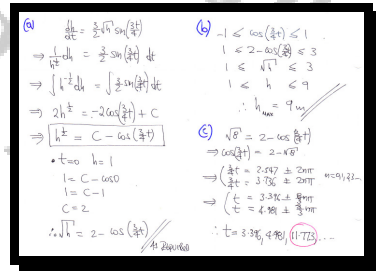 (a) dh/dt = 3/2 √h sin(3t/4)
⇒ 1/h^½ dh = 3/2 sin(3/4 t) dt
⇒ ∫ h^-½ dh = ∫ 3/2 sin(3/4 t) dt
⇒ 2h^½ = -2cos(3/4 t) + C
⇒ h^½ = C - cos(3/4 t)
• t=0 h=1
1 = C - cos0
1 = C-1
C = 2
∴ √h = 2 - cos(3/4 t)
As Required
(b) -1 ≤ cos(3/4 t) ≤ 1
1 ≤ 2-cos(3/4 t) ≤ 3
1 ≤ √h ≤ 3
1 ≤ h ≤ 9
∴ h max = 9 m
(c) √8 = 2 - cos(3/4 t)
⇒ cos(3/4 t) = 2-√8
⇒ (3/4 t = 2.547 ± 2nπ
(3/4 t = 3.736 ± 2nπ n=0,1,2,3...
⇒ (t = 3.396 ± 8/3 nπ
(t = 4.981 ± 8/3 nπ
∴ t = 3.396, 4.981, 11.773, ....